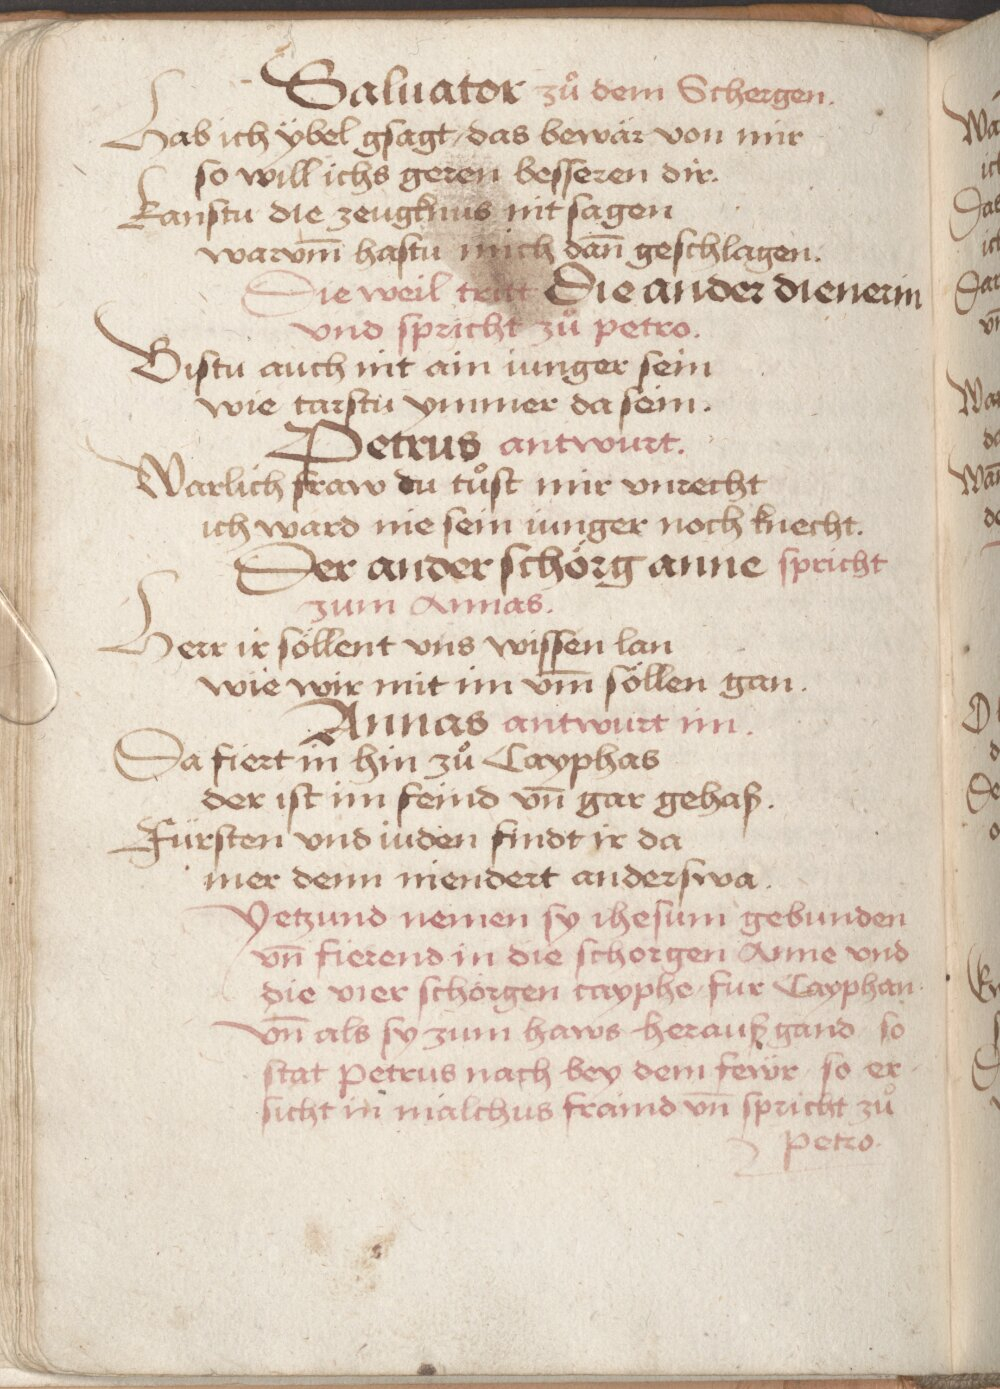 Saluator zů dem Schergen.
Hab ich ÿbel gsagt, das bewär von mir
so will ichs geren besseren dir.
Kanstu die zeugknus nit sagen
warvm̄ hastu mich dan̄ geschlagen.
Die weil tritt Die ander dienerin
vnd spricht zů petro.
Bistu auch nit ain iunger sein
wie tarstu ymmer da sein.
Petrus antwurt.
Warlich fraw du tůst mir vnrecht
ich ward nie sein iunger noch knecht.
Der ander schörg anne spricht
zum Annas.
Herr ir söllent vns wissen lan
wie wir mit im vm̄ söllen gan.
Annas antwurt im.
Da fiert in hin zů Cayphas
der ist im feind vn̄ gar gehaß.
Fürsten vnd iuden findt ir da
mer denn niendert anderswa.
Yetzund nemen sy ihesum gebunden
vn̄ fierend in die schorgen Anne vnd
die vier schörgen cayphe für Cayphan
vn̄ als sy zum haws herauß gand so
stat Petrus nach bey dem fewr so er
sicht in malchus fraind vn̄ spricht zů
Petro.